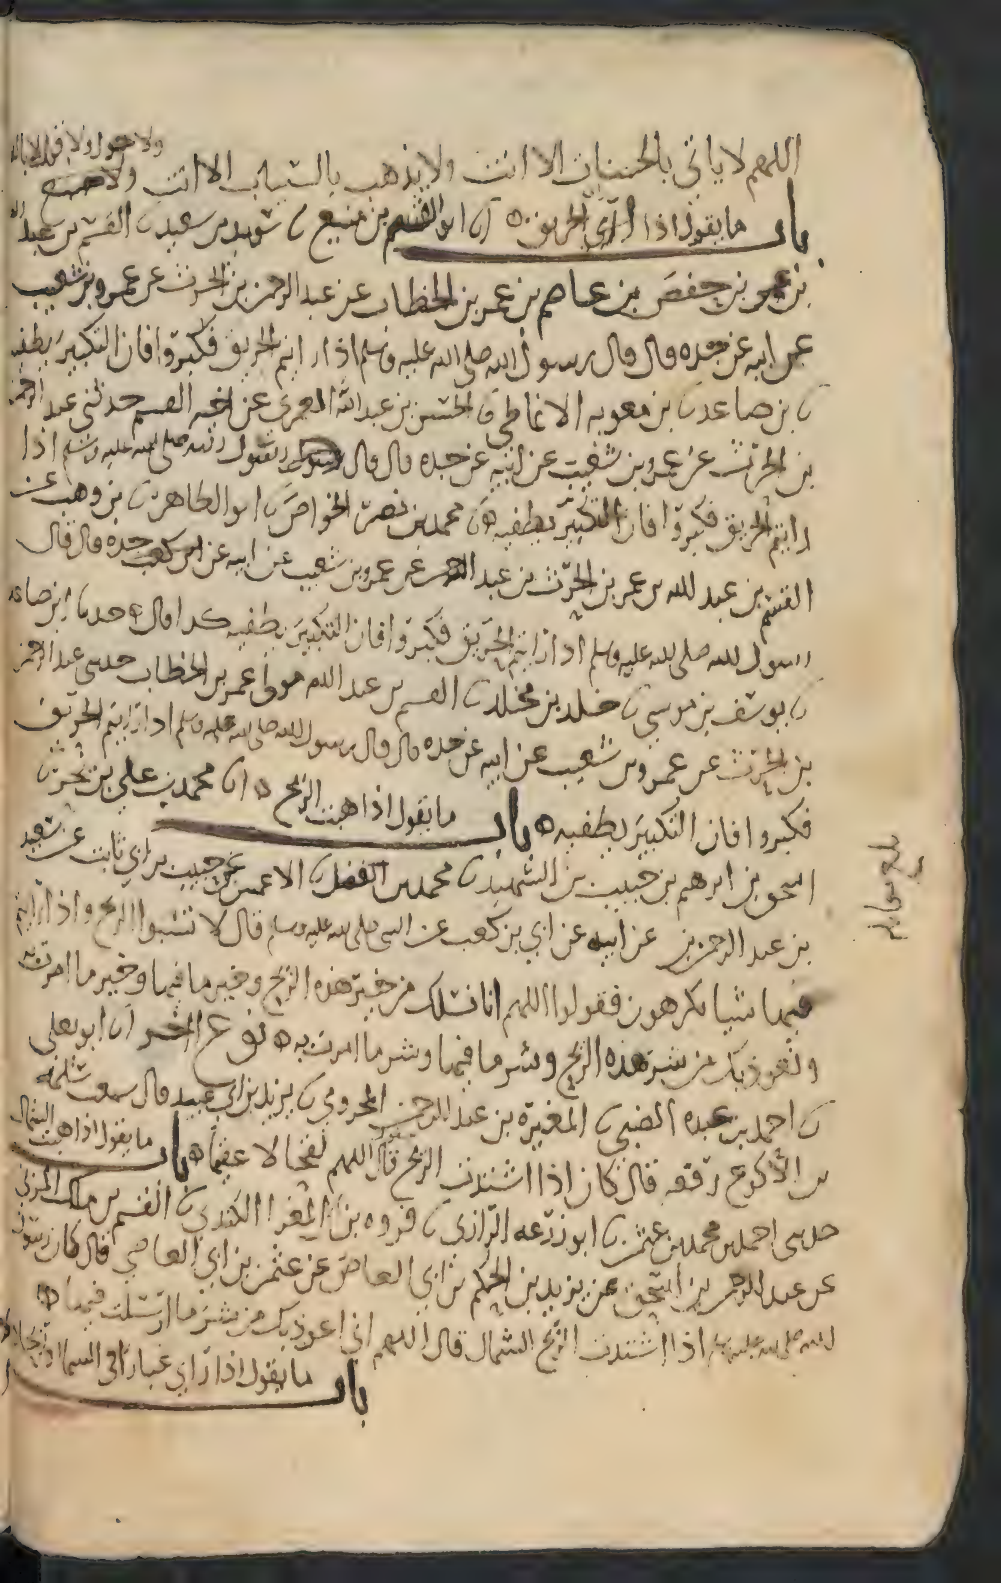 اللهم لا ياتي بالحسنات الا انت ولا يذهب بالسيات الا انت ولا حول ولا قوة الا بالله
باب ما يقول اذا راي الحريق ابو القسم بن منيع سويد بن سعيد القسم بن عبد الله
بن عمر بن حفص بن عاصم بن عمر بن الخطاب عن عبد الرحمن بن الحرث عن عمرو بن شعيب
عن ابيه عن جده قال قال رسول الله صلى الله عليه وسلم اذا رايتم الحريق فكبروا فان التكبير يطفيه
بن صاعد بن معويه الانماطي الحسين بن عبد الله العمري عن اخيه القسم حدثني عبد الرحمن
بن الحرث عن عمرو بن شعيب عن ابيه عن جده قال قال رسول الله صلى الله عليه وسلم اذا
رايتم الحريق فكبروا فان التكبير يطفيه محمد بن نصر الخواص ابو الطاهر بن وهب عن
القسم بن عبد الله بن عمر بن الحرث بن عبد عن عمرو بن شعيب عن ابيه عن جده قال قال
رسول الله صلى الله عليه وسلم اذا رايتم الحريق فكبروا فان التكبير يطفيه كذا قال ابن صاعد
يوسف بن موسى خلد بن مخلد القسم بن عبد الله مولى عمر بن الخطاب حدثني عبد الرحمن
بن الحرث عن عمرو بن شعيب عن ابيه عن جده قال قال رسول الله صلى الله عليه وسلم اذا رايتم الحريق
فكبروا فان التكبير يطفيه باب ما يقول اذا هبت الريح محمد بن علي بن بحر
اسحق بن ابرهيم بن حبيب بن الشهيد محمد بن الفضل الاعمش عن حبيب بن ابي ثابت عن سعيد
بن عبد الرحمن بن عن ابيه عن ابي بن كعب عن النبي صلى الله عليه وسلم قال لا تسبوا الريح واذا رايتم
فيها شيا تكرهون فقولوا اللهم انا نسلك من خير هذه الريح وخير ما فيها وخير ما امرت به
ونعوذ بك من شر هذه الريح وشر ما فيها وشر ما امرت به نوع اخر ابو يعلى
احمد بن عبده الضبي المغيرة بن عبد الرحمن المخزومي يزيد بن ابي عبيد قال سمعت سلمه
بن الاكوع رفعه قال كان اذا اشتدت الريح قال اللهم لقحا لا عقيما باب ما يقول اذا هبت الشمال
حدثني احمد بن محمد بن عثمن ابو زرعه الرازي فروه بن ابي المغرا الكندي القسم بن ملك المزني
عن عبد الرحمن بن اسحق عن يزيد بن الحكم بن ابي العاص عن عثمن بن ابي العاصي قال كان رسول
الله صلى الله عليه وسلم اذا اشتدت الريح الشمال قال اللهم اني اعوذ بك من شر ما ارسلت فيها
باب ما يقول اذا راي غبارا في السما او ريحا